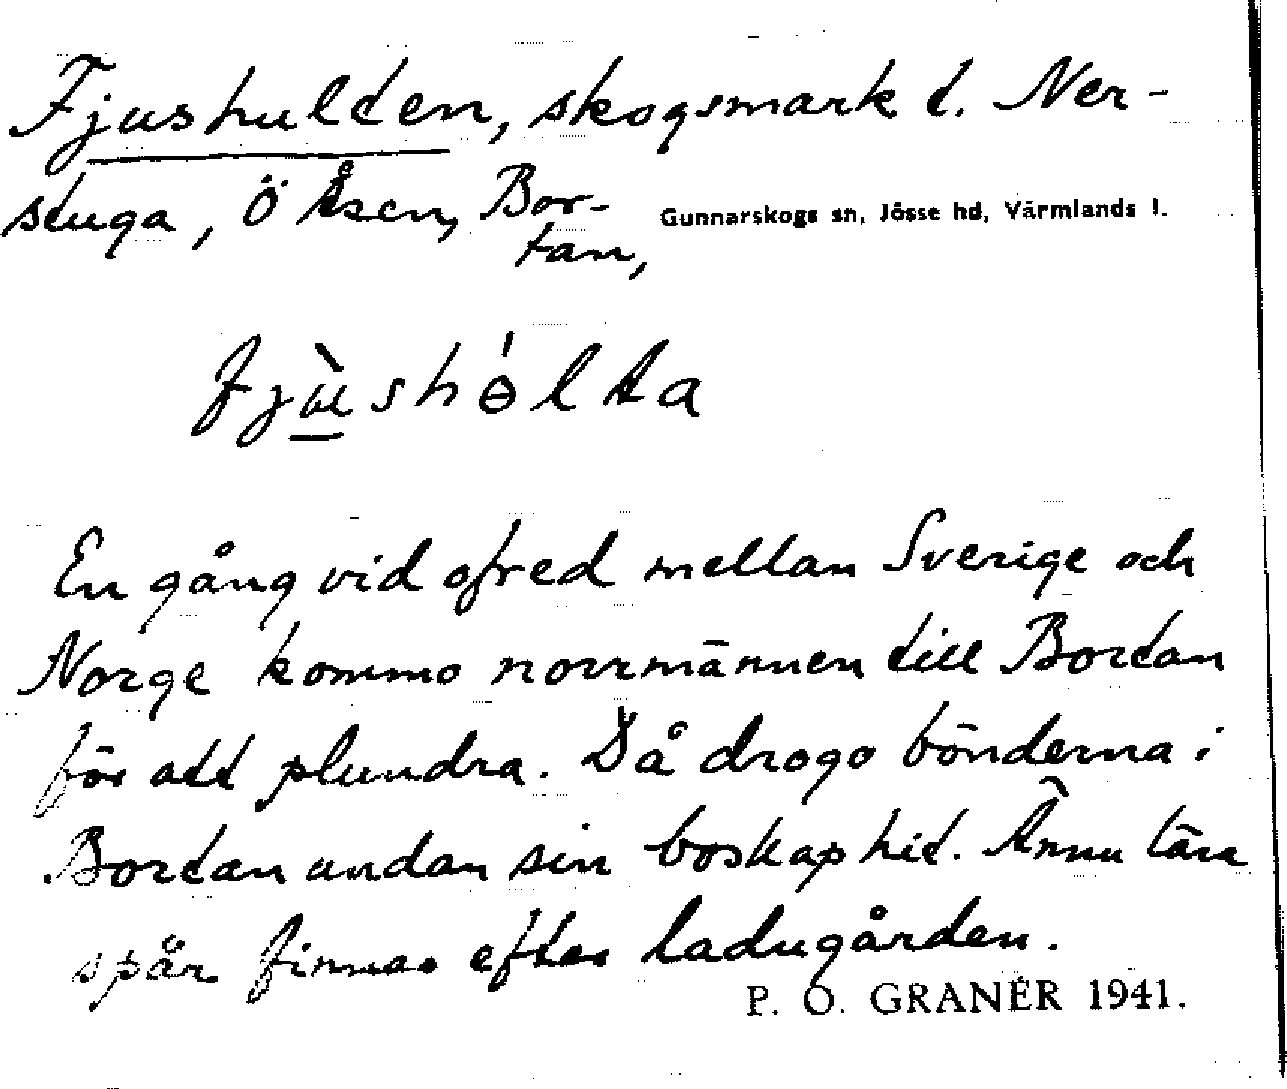 Fjushulten, skogsmark t. Ner-
stuga, Ö Åsen, Bor-
tan,
Gunnarskogs sn, Jösse hd, Värmlands l.
fjùshó̵lta
En gång vid ofred mellan Sverige och
Norge kommo norrmännen till Bortan
för att plundra. Då drogo bönderna i
Bortan undan sin boskap hit. Ännu lära
spår finnas efter ladugården.
P. O. GRANÉR 1941.